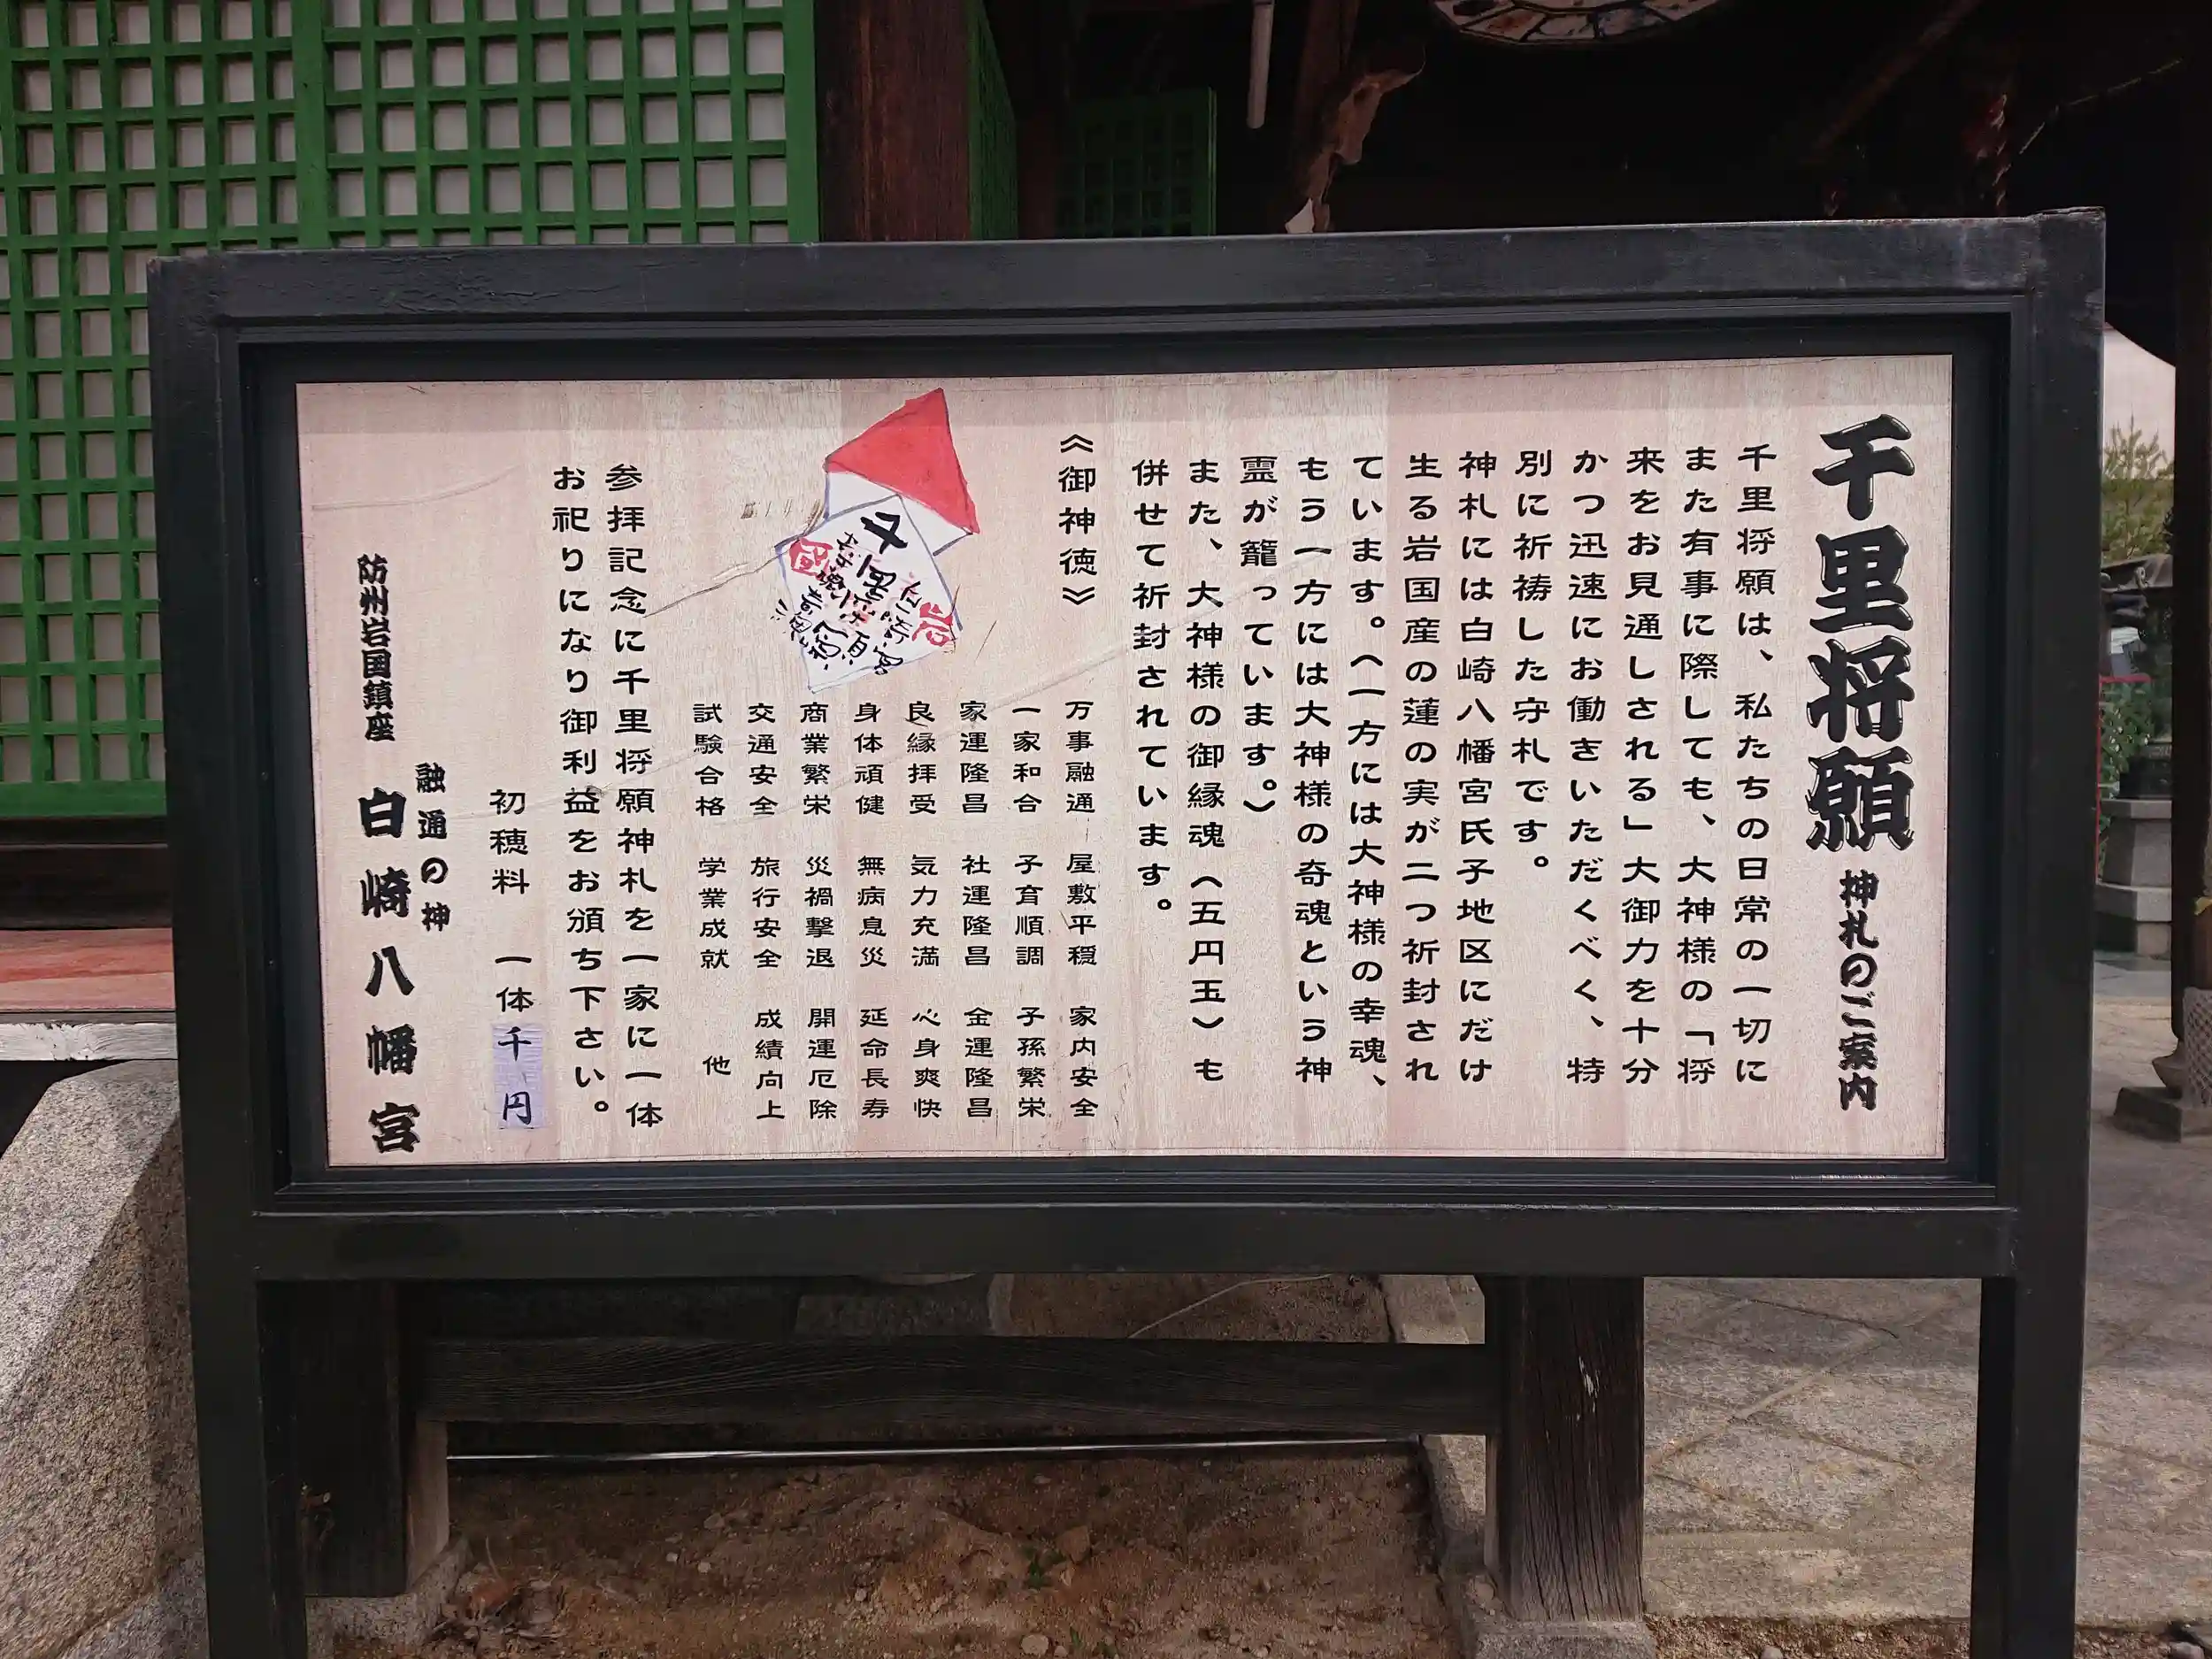 千里将願 神札のご案内
千里将願は、私たちの日常の一切に
また有事に際しても、大神様の「将
来をお見通しされる」大御力を十分
かつ迅速にお働きいただくべく、特
別に祈祷した守札です。
神札には白崎八幡宮氏子地区にだけ
生る岩国産の蓮の実が二つ祈封され
ています。〈一方には大神様の幸魂、
もう一方には大神様の奇魂という神
霊が籠っています。〉
また、大神様の御縁魂〈五円玉〉も
併せて祈封されています。
《御神徳》
万事融通 屋敷平穏 家内安全
一家和合 子育順調 子孫繁栄
家運隆昌 社運隆昌 金運隆昌
良縁拝受 気力充満 心身爽快
身体頑健 無病息災 延命長寿
商業繁栄 災禍撃退 開運厄除
交通安全 旅行安全 成績向上
試験合格 学業成就 他
千里将願
参拝記念に千里将願神札を一家に一体
お祀りになり御利益をお頒ち下さい。
初穂料 一体千円
融通の神
防州岩国鎮座 白崎八幡宮